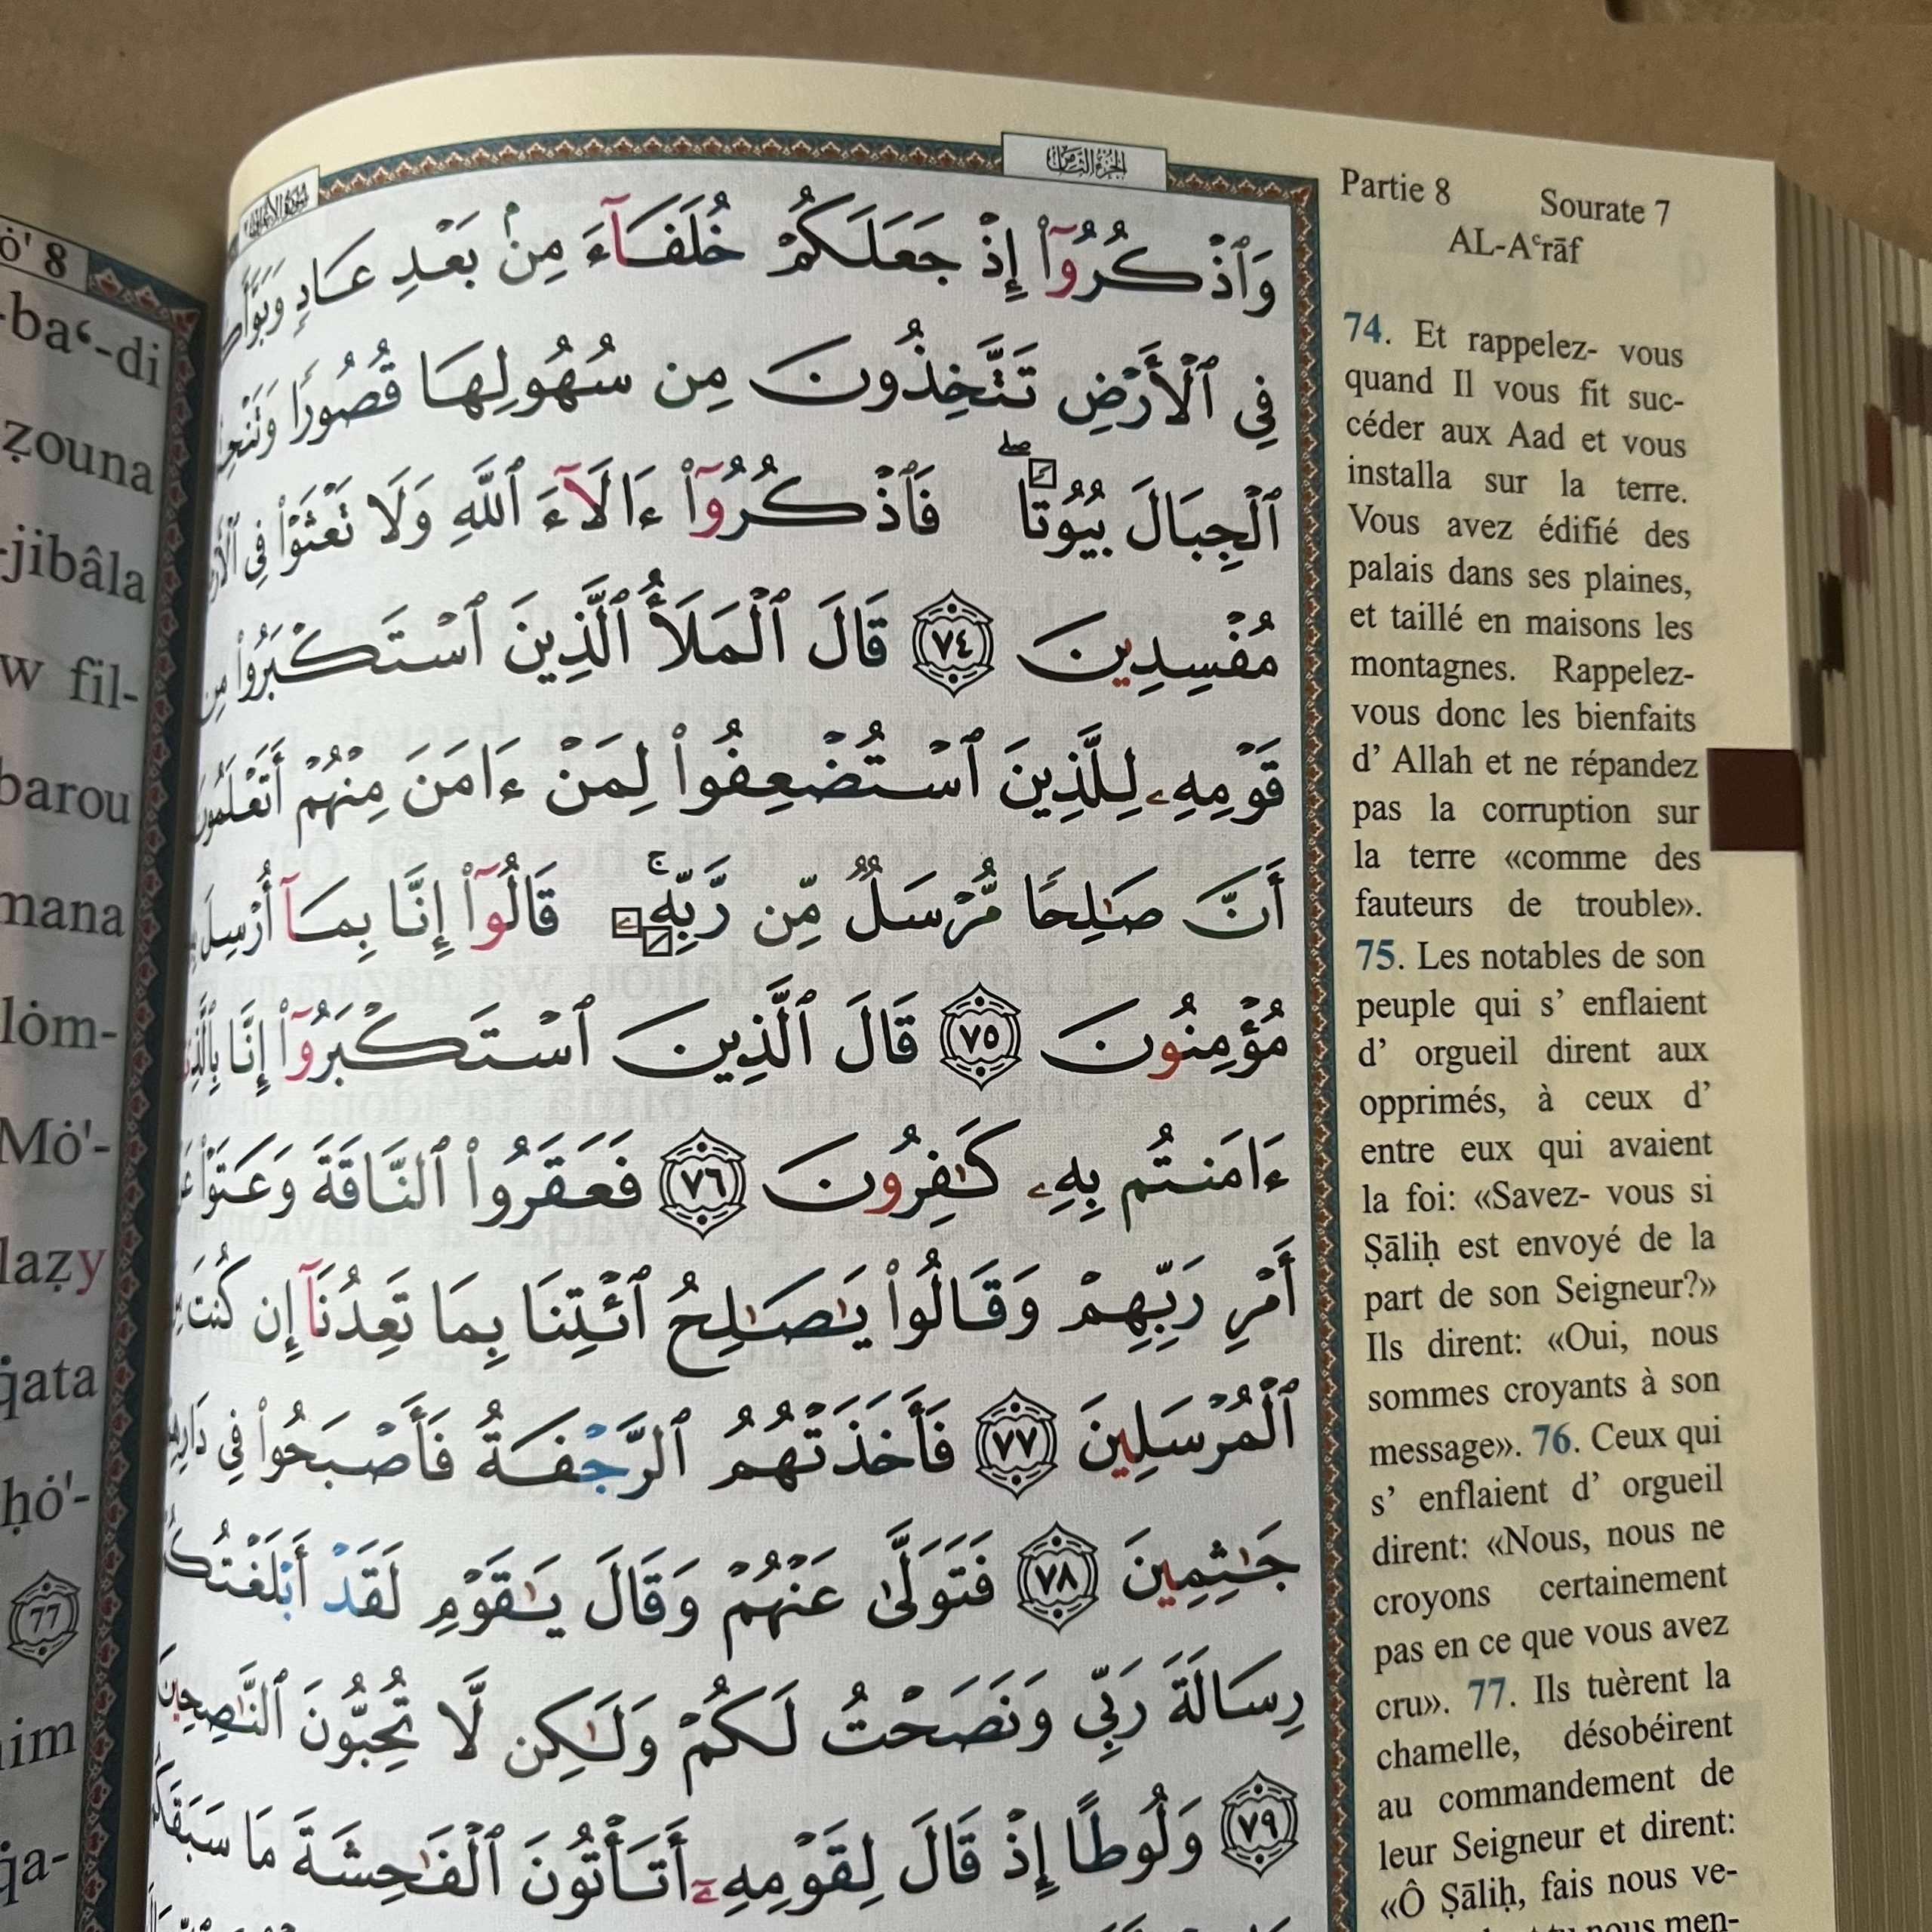 الجزء الثامن
وَٱذْكُرُوٓا۟ إِذْ جَعَلَكُمْ خُلَفَآءَ مِنۢ بَعْدِ عَادٍ
فِى ٱلْأَرْضِ تَتَّخِذُونَ مِن سُهُولِهَا قُصُورًا
ٱلْجِبَالَ بُيُوتًا ۖ فَٱذْكُرُوٓا۟ ءَالَآءَ ٱللَّهِ وَلَا تَعْثَوْا۟ فِى
مُفْسِدِينَ ٧٤ قَالَ ٱلْمَلَأُ ٱلَّذِينَ ٱسْتَكْبَرُوا۟ مِن
قَوْمِهِۦ لِلَّذِينَ ٱسْتُضْعِفُوا۟ لِمَنْ ءَامَنَ مِنْهُمْ أَتَعْلَمُونَ
أَنَّ صَـٰلِحًا مُّرْسَلٌ مِّن رَّبِّهِۦ ۚ قَالُوٓا۟ إِنَّا بِمَآ أُرْسِلَ
مُؤْمِنُونَ ٧٥ قَالَ ٱلَّذِينَ ٱسْتَكْبَرُوٓا۟ إِنَّا
ءَامَنتُم بِهِۦ كَـٰفِرُونَ ٧٦ فَعَقَرُوا۟ ٱلنَّاقَةَ وَعَتَوْا۟
أَمْرِ رَبِّهِمْ وَقَالُوا۟ يَـٰصَـٰلِحُ ٱئْتِنَا بِمَا تَعِدُنَآ إِن كُنتَ
ٱلْمُرْسَلِينَ ٧٧ فَأَخَذَتْهُمُ ٱلرَّجْفَةُ فَأَصْبَحُوا۟ فِى
جَـٰثِمِينَ ٧٨ فَتَوَلَّىٰ عَنْهُمْ وَقَالَ يَـٰقَوْمِ لَقَدْ
رِسَالَةَ رَبِّى وَنَصَحْتُ لَكُمْ وَلَـٰكِن لَّا تُحِبُّونَ ٱلنَّـٰصِحِينَ
٧٩ وَلُوطًا إِذْ قَالَ لِقَوْمِهِۦٓ أَتَأْتُونَ ٱلْفَـٰحِشَةَ مَا
Partie 8 Sourate 7
AL-Aʿrāf
74. Et rappelez- vous
quand Il vous fit suc-
céder aux Aad et vous
installa sur la terre.
Vous avez édifié des
palais dans ses plaines,
et taillé en maisons les
montagnes. Rappelez-
vous donc les bienfaits
d’ Allah et ne répandez
pas la corruption sur
la terre «comme des
fauteurs de trouble».
75. Les notables de son
peuple qui s’ enflaient
d’ orgueil dirent aux
opprimés, à ceux d’
entre eux qui avaient
la foi: «Savez- vous si
Ṣāliḥ est envoyé de la
part de son Seigneur?»
Ils dirent: «Oui, nous
sommes croyants à son
message». 76. Ceux qui
s’ enflaient d’ orgueil
dirent: «Nous, nous ne
croyons certainement
pas en ce que vous avez
cru». 77. Ils tuèrent la
chamelle, désobéirent
au commandement de
leur Seigneur et dirent:
«Ô Ṣāliḥ, fais nous ve-
ȯ' 8
-baʻ-di
ẓouna
-jibâla
w fil-
barou
mana
lȯm-
Mȯ'-
laẓy
q̇ata
ḥȯ'-
77
q̇a-